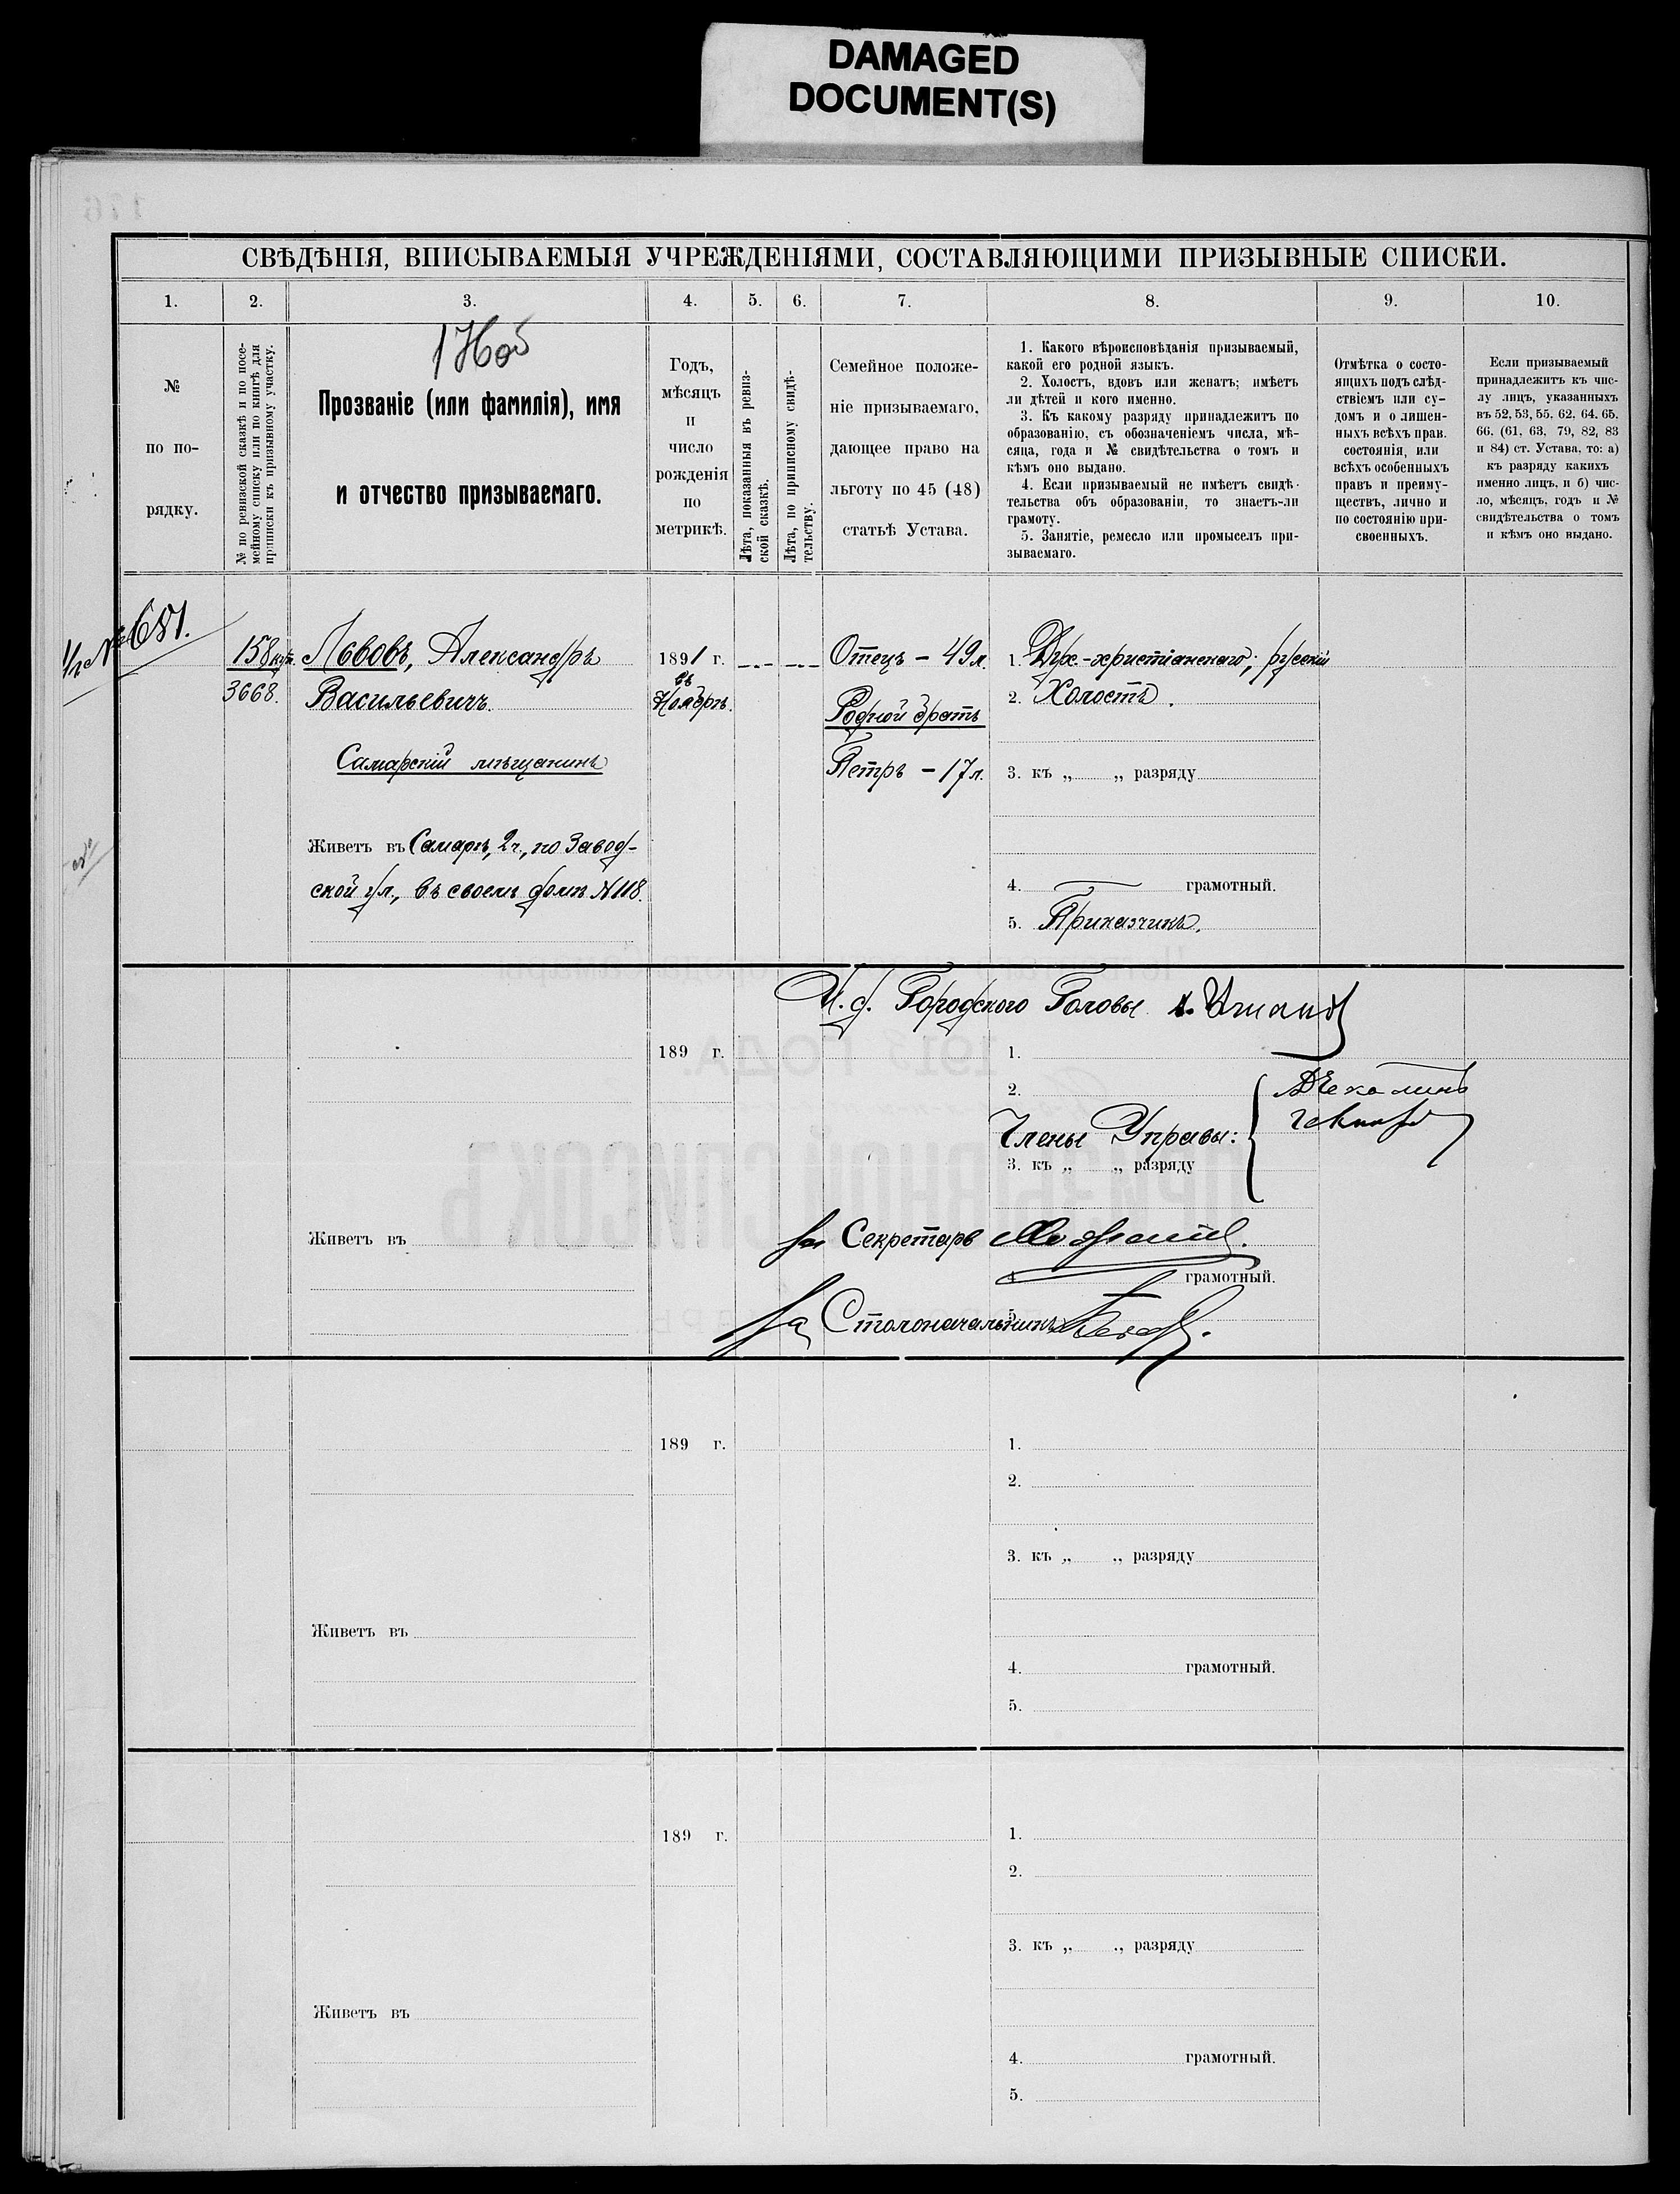 DAMAGED
DOCUMENT(S)
176
СВѢДѢНІЯ, ВПИСЫВАЕМЫЯ УЧРЕЖДЕНІЯМИ, СОСТАВЛЯЮЩИМИ ПРИЗЫВНЫЕ СПИСКИ.
1. 2. 3. 4. 5. 6. 7. 8. 9. 10.
№
по по-
рядку.
№ по ревизской сказкѣ и по посе-
мейному списку или по книгѣ для
приписки къ призывному участку.
Прозваніе (или фамилія), имя
и отчество призываемаго.
Годъ,
мѣсяцъ
и
число
рожденія
по
метрикѣ.
Лѣта, показанныя въ ревиз-
ской сказкѣ.
Лѣта, по приписному свидѣ-
тельству.
Семейное положе-
ніе призываемаго,
дающее право на
льготу по 45 (48)
статьѣ Устава.
1. Какого вѣроисповѣданія призываемый,
какой его родной языкъ.
2. Холостъ, вдовъ или женатъ; имѣетъ
ли дѣтей и кого именно.
3. Къ какому разряду принадлежитъ по
образованію, съ обозначеніемъ числа, мѣ-
сяца, года и № свидѣтельства о томъ и
кѣмъ оно выдано.
4. Если призываемый не имѣетъ свидѣ-
тельства объ образованіи, то знаетъ-ли
грамоту.
5. Занятіе, ремесло или промыселъ при-
зываемаго.
Отмѣтка о состо-
ящихъ подъ слѣд-
ствіемъ или су-
домъ и о лишен-
ныхъ всѣхъ прав.
состоянія, или
всѣхъ особенныхъ
правъ и преиму-
ществъ, лично и
по состоянію при-
своенныхъ.
Если призываемый
принадлежитъ къ чис-
лу лицъ, указанныхъ
въ 52, 53, 55, 62, 64, 65,
66, (61, 63, 79, 82, 83
и 84) ст. Устава, то: а)
къ разряду какихъ
именно лицъ, и б) чис-
ло, мѣсяцъ, годъ и №
свидѣтельства о томъ
и кѣмъ оно выдано.
№ 681.
158 куп.
3668.
Львовъ, Александръ
Васильевичъ.
Самарскій мѣщанинъ
Живетъ въ Самарѣ, 2 ч., по Завод-
ской ул., въ своемъ домѣ N 118.
1891 г.
въ
Ноябрѣ.
Отецъ – 49 л.
Родной братъ
Петръ – 17 л.
1. Дух.-христіанскаго; русскій
2. Холостъ.
3. къ „ „ разряду
4. грамотный.
5. Приказчикъ.
И. д. Городского Головы
189 г.
1.
2.
Члены Управы:
3. къ „ „ разряду
Живетъ въ
За Секретаря
4. грамотный.
За Столоначальника
5.
189 г.
1.
2.
3. къ „ „ разряду
Живетъ въ
4. грамотный.
5.
189 г.
1.
2.
3. къ „ „ разряду
Живетъ въ
4. грамотный.
5.